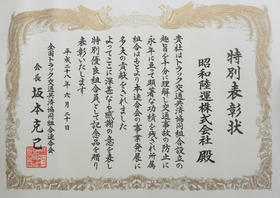 特別表彰状
昭和陸運株式会社 殿
貴社はトラック交通共済協同組合設立の
趣旨を十分に理解し交通事故の防止に
永年に亘って顕著な功績を残され所属
組合はもとより本連合会の事業発展に
多大の貢献をされました
よってここに深甚なる感謝の意を表し
特別優良組合員として記念品を贈り
表彰いたします
平成二十八年六月二十日
全国トラック交通共済協同組合連合会
会長 坂本克己